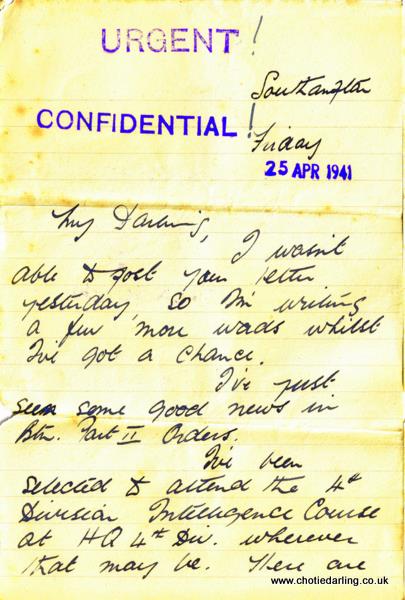 URGENT !
Southampton
CONFIDENTIAL !
Friday
25 APR 1941
My Darling,
I wasn't
able to post your letter
yesterday, so I'm writing
a few more words whilst
I've got a chance.
I've just
seen some good news in
Btn. Part II Orders.
I've been
selected to attend the 4th
Division Intelligence Course
at HQ 4th Div. wherever
that may be. There are
www.chotiedarling.co.uk